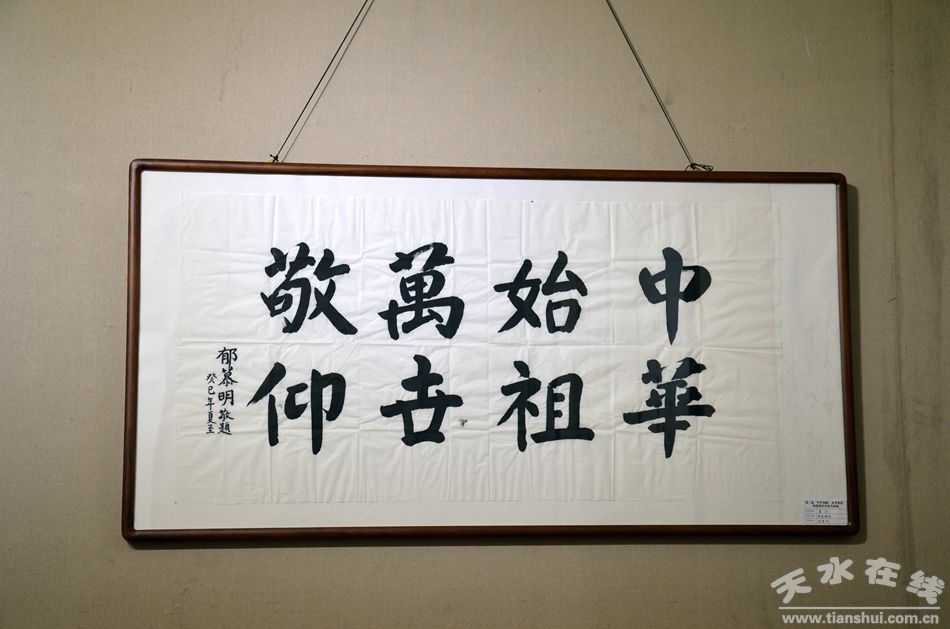 中華
始祖
萬世
敬仰
郁慕明敬題
癸巳年夏至
天水在线
www.tianshui.com.cn